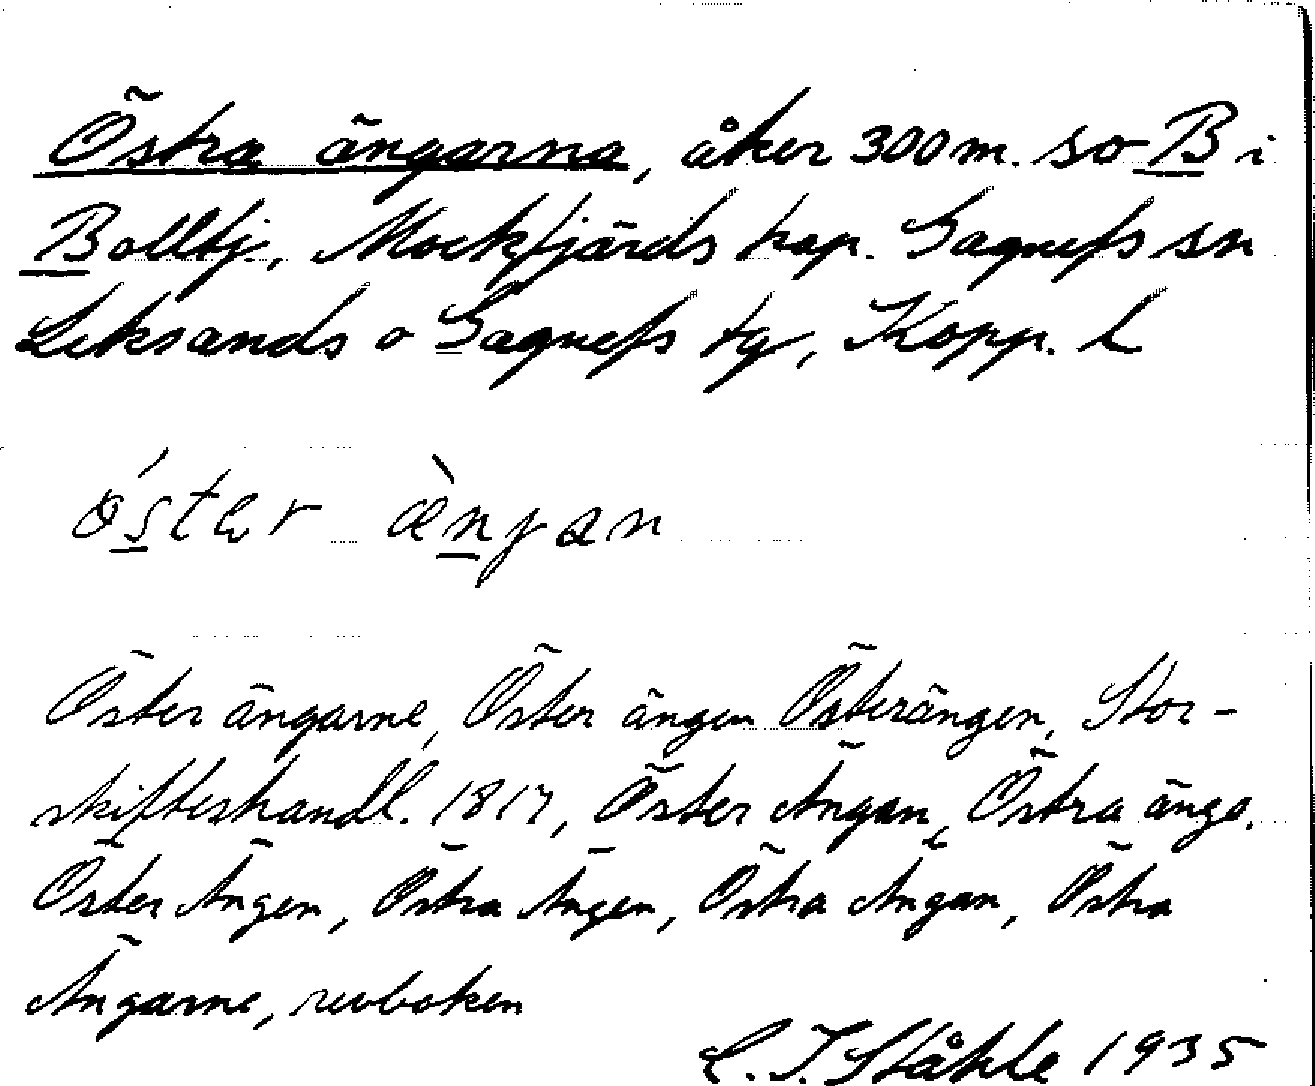 Östra ängarna, åker 300 m. so B i
Bolltj., Mockfjärds kap. Gagnefs sn
Leksands o Gagnefs tg, Kopp. l
öster ængan
Öster ängarne, Öster ängen Österängen, Stor-
skifteshandl. 1817, Öster Ängan, Östra änga.
Öster Ängen, Östra Ängen, Östra Ängan, Östra
Ängarne, revboken
C. I. Ståhle 1935